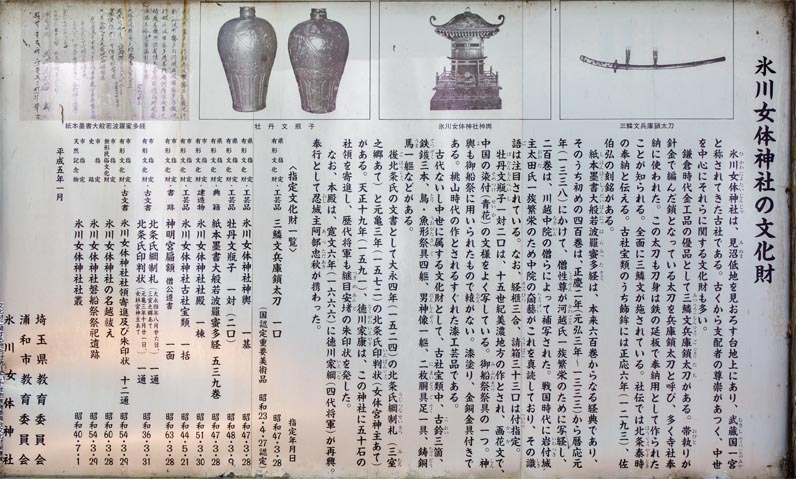 氷川女体神社の文化財
氷川女体神社は、見沼低地を見おろす台地上にあり、武蔵国一宮
と称されてきた古社である。古くから支配者の尊崇があつく、中世
を中心にそれらに関する文化財も多い。
鎌倉時代金工品の優品として三鱗文兵庫鎖太刀がある。帯執りが
針金で編んだ鎖となっている太刀を兵庫鎖太刀と呼び、多く寺社奉
納に使われた。この太刀も刀身は鉄の延板で奉納用として作られた
ことが知られる。全面に三鱗文が施されている。社伝では北条泰時
の奉納と伝える。古社宝類のうち飾鉾には正応六年(一二九三)、佐
伯弘の刻銘がある。
紙本墨書大般若波羅蜜多経は、本来六百巻からなる経典であり、
そのうち初めの四百巻は、正慶二年(元弘三年〜一三三三)から暦応元
年(一三三八)にかけて、僧性尊が河越氏一族繁栄のために写経し、
二百巻は、川越中院の僧らによって補写された。戦国時代に岩付城
主太田氏一族繁栄のため中院の奝藝がこれを真読しており、その識
語は注目されている。なお、経櫃三合、請箱三十三口は付指定。
牡丹文瓶子一対二口は、十五世紀美濃地方の作とされ、画花文で、
中国の染付(青花)の文様をよく写している。御船祭祭具の一つ。神
輿も御船祭に用いられたもので轅がない。漆塗り、金銅金具付きで
ある。桃山時代の作とされるすぐれた漆工芸品である。
古代ないし中世に属する文化財として、古社宝類中、古鈴三箇
鉄鏃三本、鳥・魚形祭具四躯、男神像一躯、二枚胴具足一具、鋳銅
馬一躯などがある。
後北条氏の文書として大永四年(一五二四)の北条氏綱制札(三室
之郷あて)と元亀三年(一五七二)の北条氏印判状(女体宮神主あて)
がある。天正十九年(一五九一)、徳川家康は、この神社に五十石の
社領を寄進し、歴代将軍も領目安堵の朱印状を発した。
なお、本殿は、寛文六年(一六六六)に徳川家綱(四代将軍)が再興。
奉行として忍城主阿部忠秋が携わった。
〈指定文化財一覧〉
指定年月日
県指定有形文化財・工芸品 三鱗文兵庫鎖太刀 一口 昭和47・3・28
(国認定重要美術品 昭和23・4・27認定)
県指定有形文化財・工芸品 氷川女体神社神輿 一基 昭和47・3・28
県指定有形文化財・工芸品 牡丹文瓶子 一対(二口) 昭和48・3・9
県指定有形文化財・典籍 紙本墨書大般若波羅蜜多経 五三九巻 昭和47・3・28
市指定有形文化財・建造物 氷川女体神社社殿 一棟 昭和51・3・30
市指定有形文化財・工芸品 氷川女体神社古社宝類 一括 昭和44・5・21
市指定有形文化財・書跡 神明宮扁額 僧公遵書 一面 昭和63・3・28
市指定有形文化財・古文書 北条氏綱制札 一通
北条氏印判状 一通 昭和36・3・31
市指定有形文化財・古文書 氷川女体神社社領寄進及び朱印状 十二通 昭和54・3・29
市指定無形民俗文化財 氷川女体神社の名越祓え 昭和60・3・28
市指定史跡 氷川女体神社磐船祭祭祀遺跡 昭和54・3・29
市指定天然記念物 氷川女体神社社叢 昭和40・7・1
平成五年一月
埼玉県教育委員会
浦和市教育委員会
氷川女体神社
三鱗文兵庫鎖太刀
氷川女体神社神輿
牡丹文瓶子
紙本墨書大般若波羅蜜多経